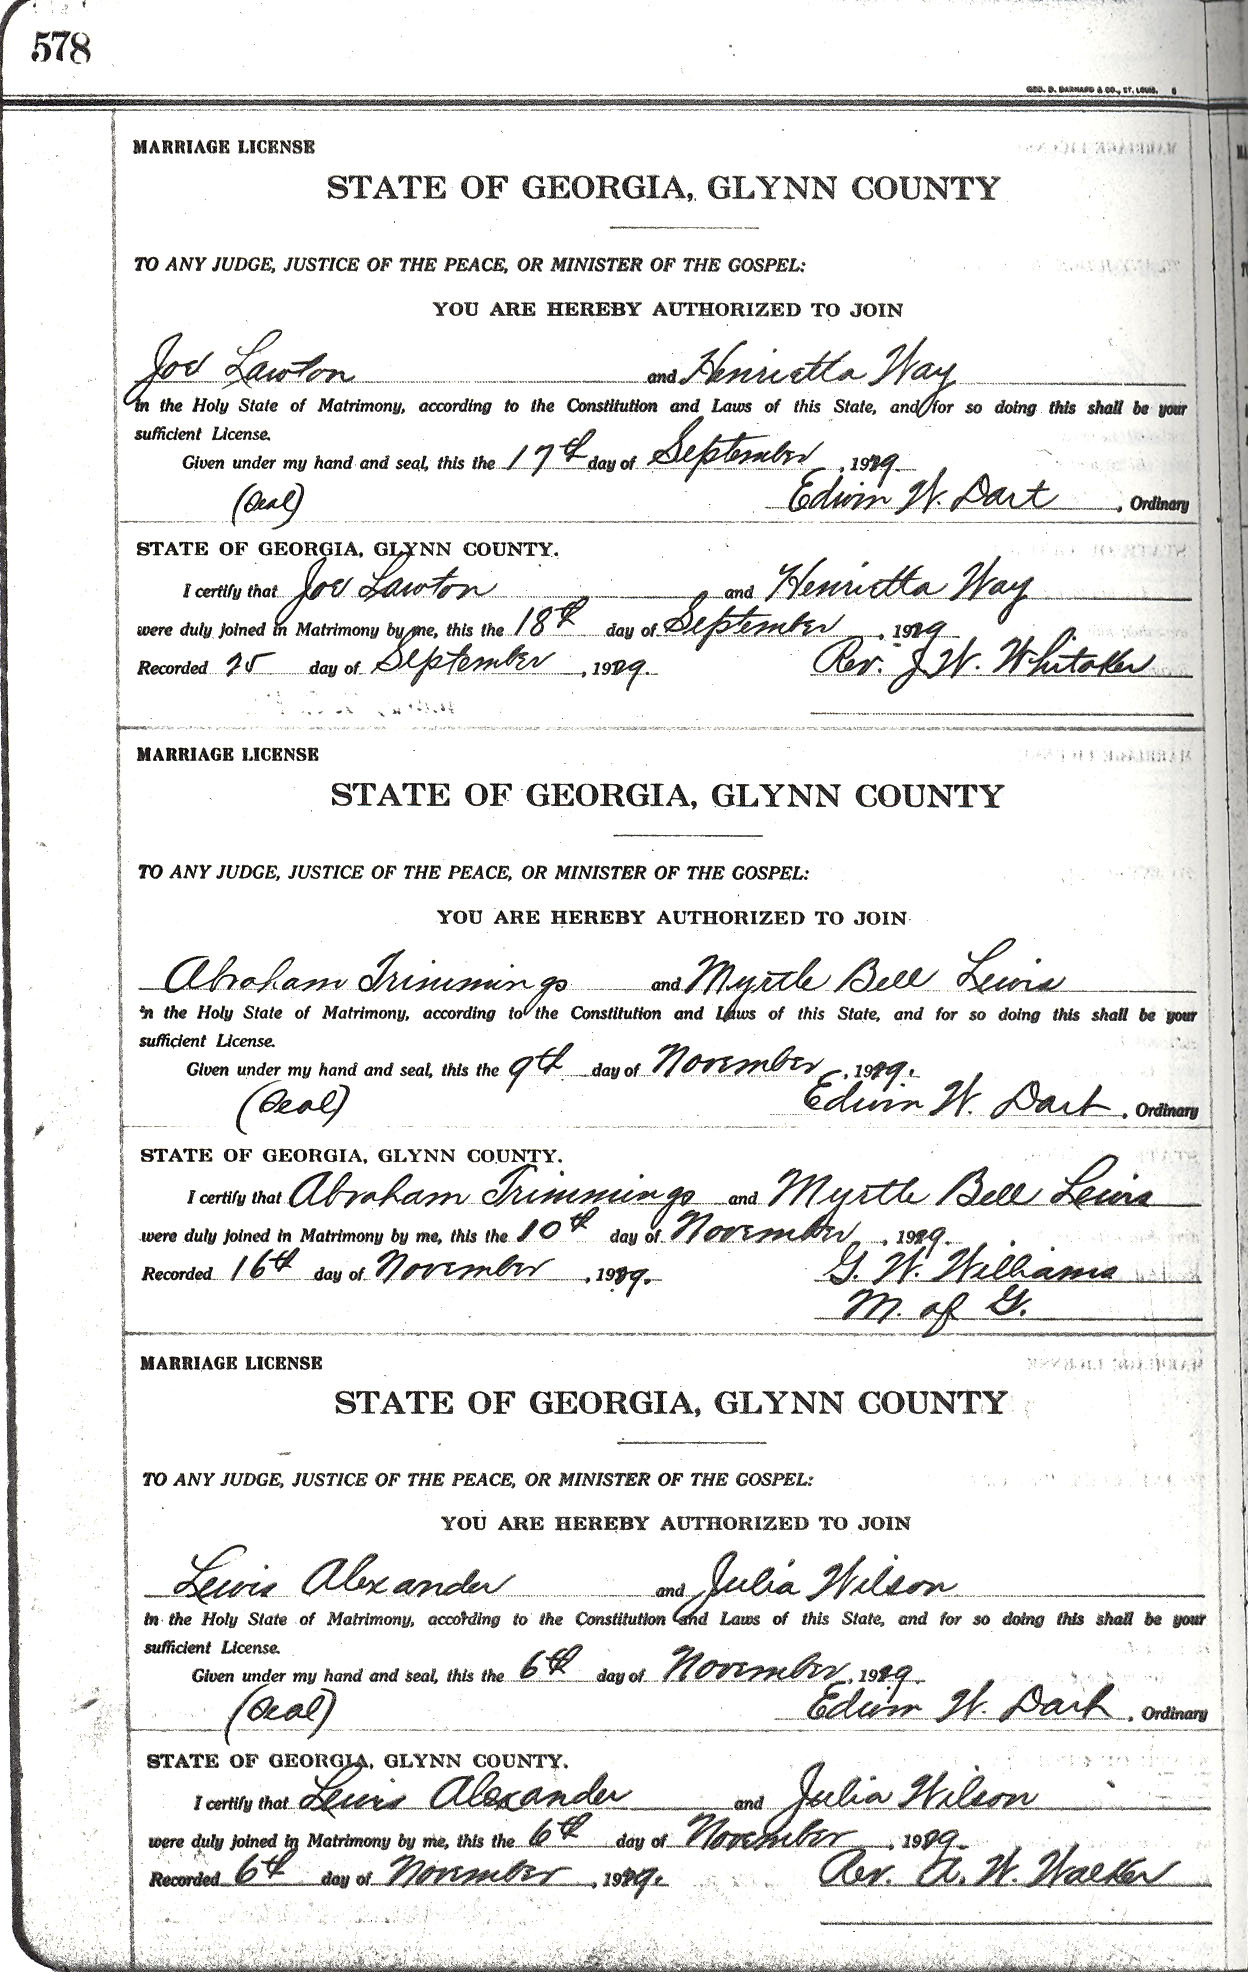 578
GEO. D. BARNARD & CO., ST. LOUIS. 6
MARRIAGE LICENSE
STATE OF GEORGIA, GLYNN COUNTY
TO ANY JUDGE, JUSTICE OF THE PEACE, OR MINISTER OF THE GOSPEL:
YOU ARE HEREBY AUTHORIZED TO JOIN
Joe Lawton and Henrietta Way
in the Holy State of Matrimony, according to the Constitution and Laws of this State, and for so doing this shall be your
sufficient License.
Given under my hand and seal, this the 17th day of September, 1929.
(Seal) Edwin W. Dart, Ordinary
STATE OF GEORGIA, GLYNN COUNTY.
I certify that Joe Lawton and Henrietta Way
were duly joined in Matrimony by me, this the 18th day of September, 1929
Recorded 25 day of September, 1929. Rev. J. W. Whitaker
MARRIAGE LICENSE
STATE OF GEORGIA, GLYNN COUNTY
TO ANY JUDGE, JUSTICE OF THE PEACE, OR MINISTER OF THE GOSPEL:
YOU ARE HEREBY AUTHORIZED TO JOIN
Abraham Trimmings and Myrtle Bell Lewis
in the Holy State of Matrimony, according to the Constitution and Laws of this State, and for so doing this shall be your
sufficient License.
Given under my hand and seal, this the 9th day of November, 1929.
(Seal) Edwin W. Dart, Ordinary
STATE OF GEORGIA, GLYNN COUNTY.
I certify that Abraham Trimmings and Myrtle Bell Lewis
were duly joined in Matrimony by me, this the 10th day of November, 1929.
Recorded 16th day of November, 1929. G. W. Williams
M. of G.
MARRIAGE LICENSE
STATE OF GEORGIA, GLYNN COUNTY
TO ANY JUDGE, JUSTICE OF THE PEACE, OR MINISTER OF THE GOSPEL:
YOU ARE HEREBY AUTHORIZED TO JOIN
Lewis Alexander and Julia Wilson
in the Holy State of Matrimony, according to the Constitution and Laws of this State, and for so doing this shall be your
sufficient License.
Given under my hand and seal, this the 6th day of November, 1929
(Seal) Edwin W. Dart, Ordinary
STATE OF GEORGIA, GLYNN COUNTY.
I certify that Lewis Alexander and Julia Wilson
were duly joined in Matrimony by me, this the 6th day of November, 1929.
Recorded 6th day of November, 1929. Rev. A. W. Walker